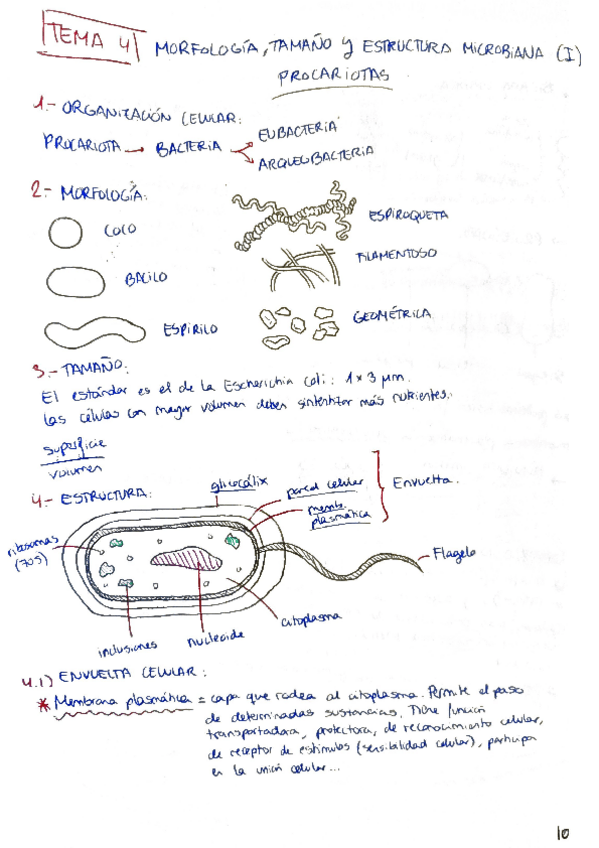 TEMA 4 MORFOLOGÍA, TAMAÑO y ESTRUCTURA MICROBIANA (I)
PROCARIOTAS
1.- ORGANIZACIÓN CELULAR:
PROCARIOTA → BACTERIA
EUBACTERIA
ARQUEOBACTERIA
2.- MORFOLOGÍA:
COCO
BACILO
ESPIRILO
ESPIROQUETA
FILAMENTOSO
GEOMÉTRICA
3.- TAMAÑO:
El estándar es el de la Escherichia Coli: 1 x 3 µm.
Las células con mayor volumen deben sintetizar más nutrientes.
superficie
volumen
4.- ESTRUCTURA:
glicocálix
pared celular
memb. plasmática
Envuelta.
ribosomas
(70S)
Flagelo
citoplasma
nucleoide
inclusiones
4.1) ENVUELTA CELULAR:
* Membrana plasmática = capa que rodea al citoplasma. Permite el paso
de determinadas sustancias. Tiene función
transportadora, protectora, de reconocimiento celular,
de receptor de estímulos (sensibilidad celular), participa
en la unión celular...
10